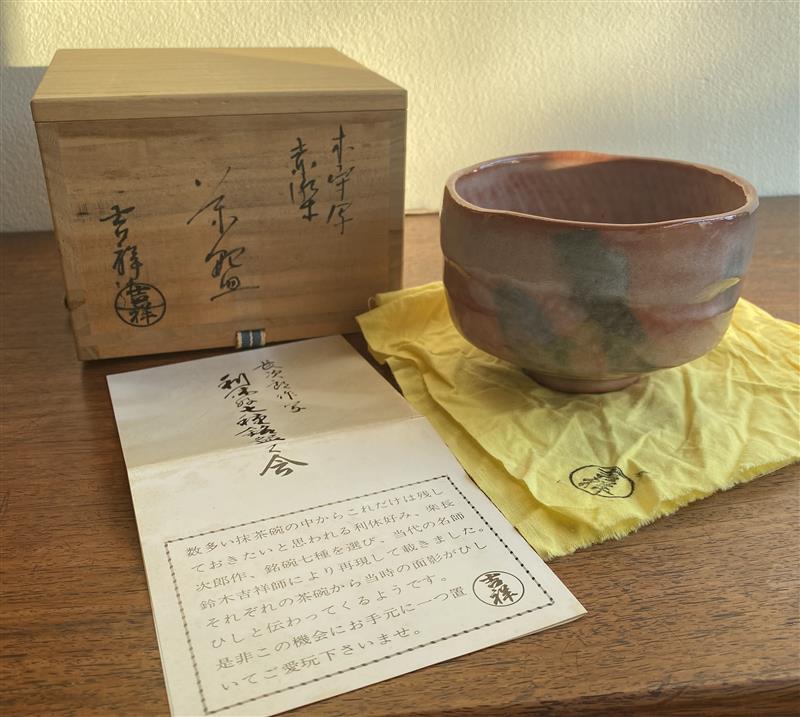 木守写
赤楽
茶盌
吉祥
吉祥
長次郎作写
利休好七種銘盌の会
数多い抹茶碗の中からこれだけは残し
ておきたいと思われる利休好み、楽長
次郎作、銘碗七種を選び、当代の名師
鈴木吉祥師により再現して戴きました。
それぞれの茶碗から当時の面影がひし
ひしと伝わってくるようです。
是非この機会にお手元に一つ置
いてご愛玩下さいませ。
吉祥
吉祥